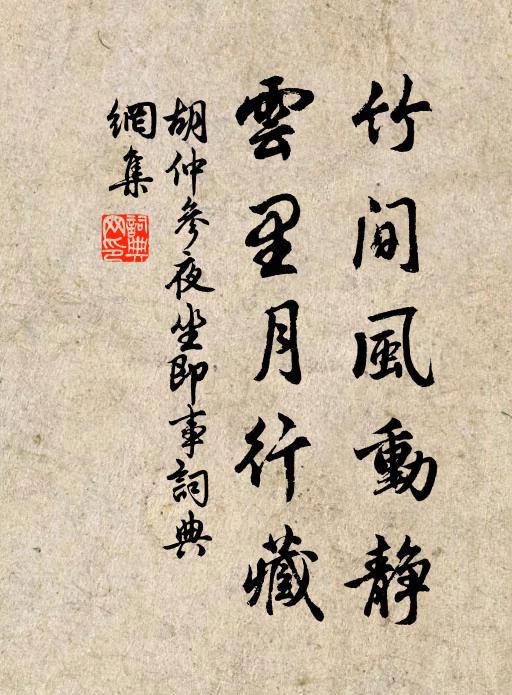 竹間風動靜
雲里月行藏
胡仲參夜坐即事詞典
網集
詞典
网印